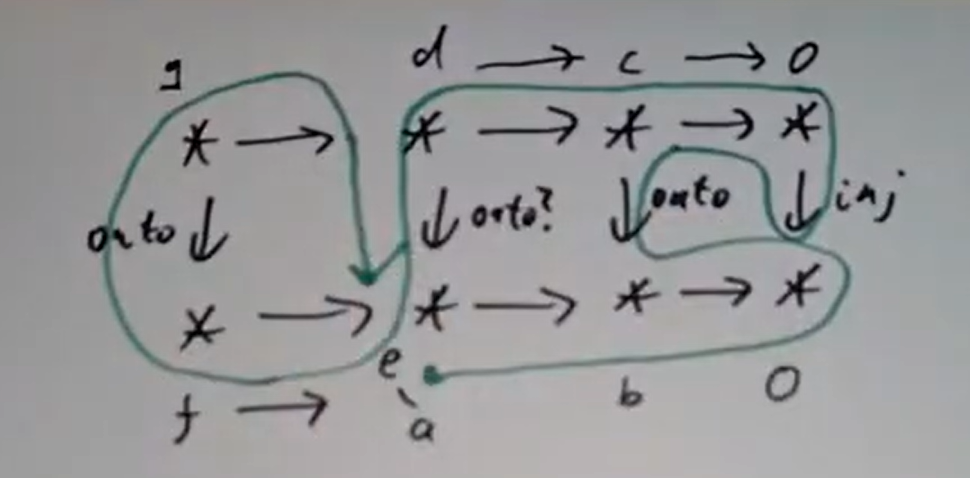 g d → c → 0
* → * → * → *
onto ↓ ↓ onto? ↓ onto ↓ inj
* → * → * → *
f → e - a b 0